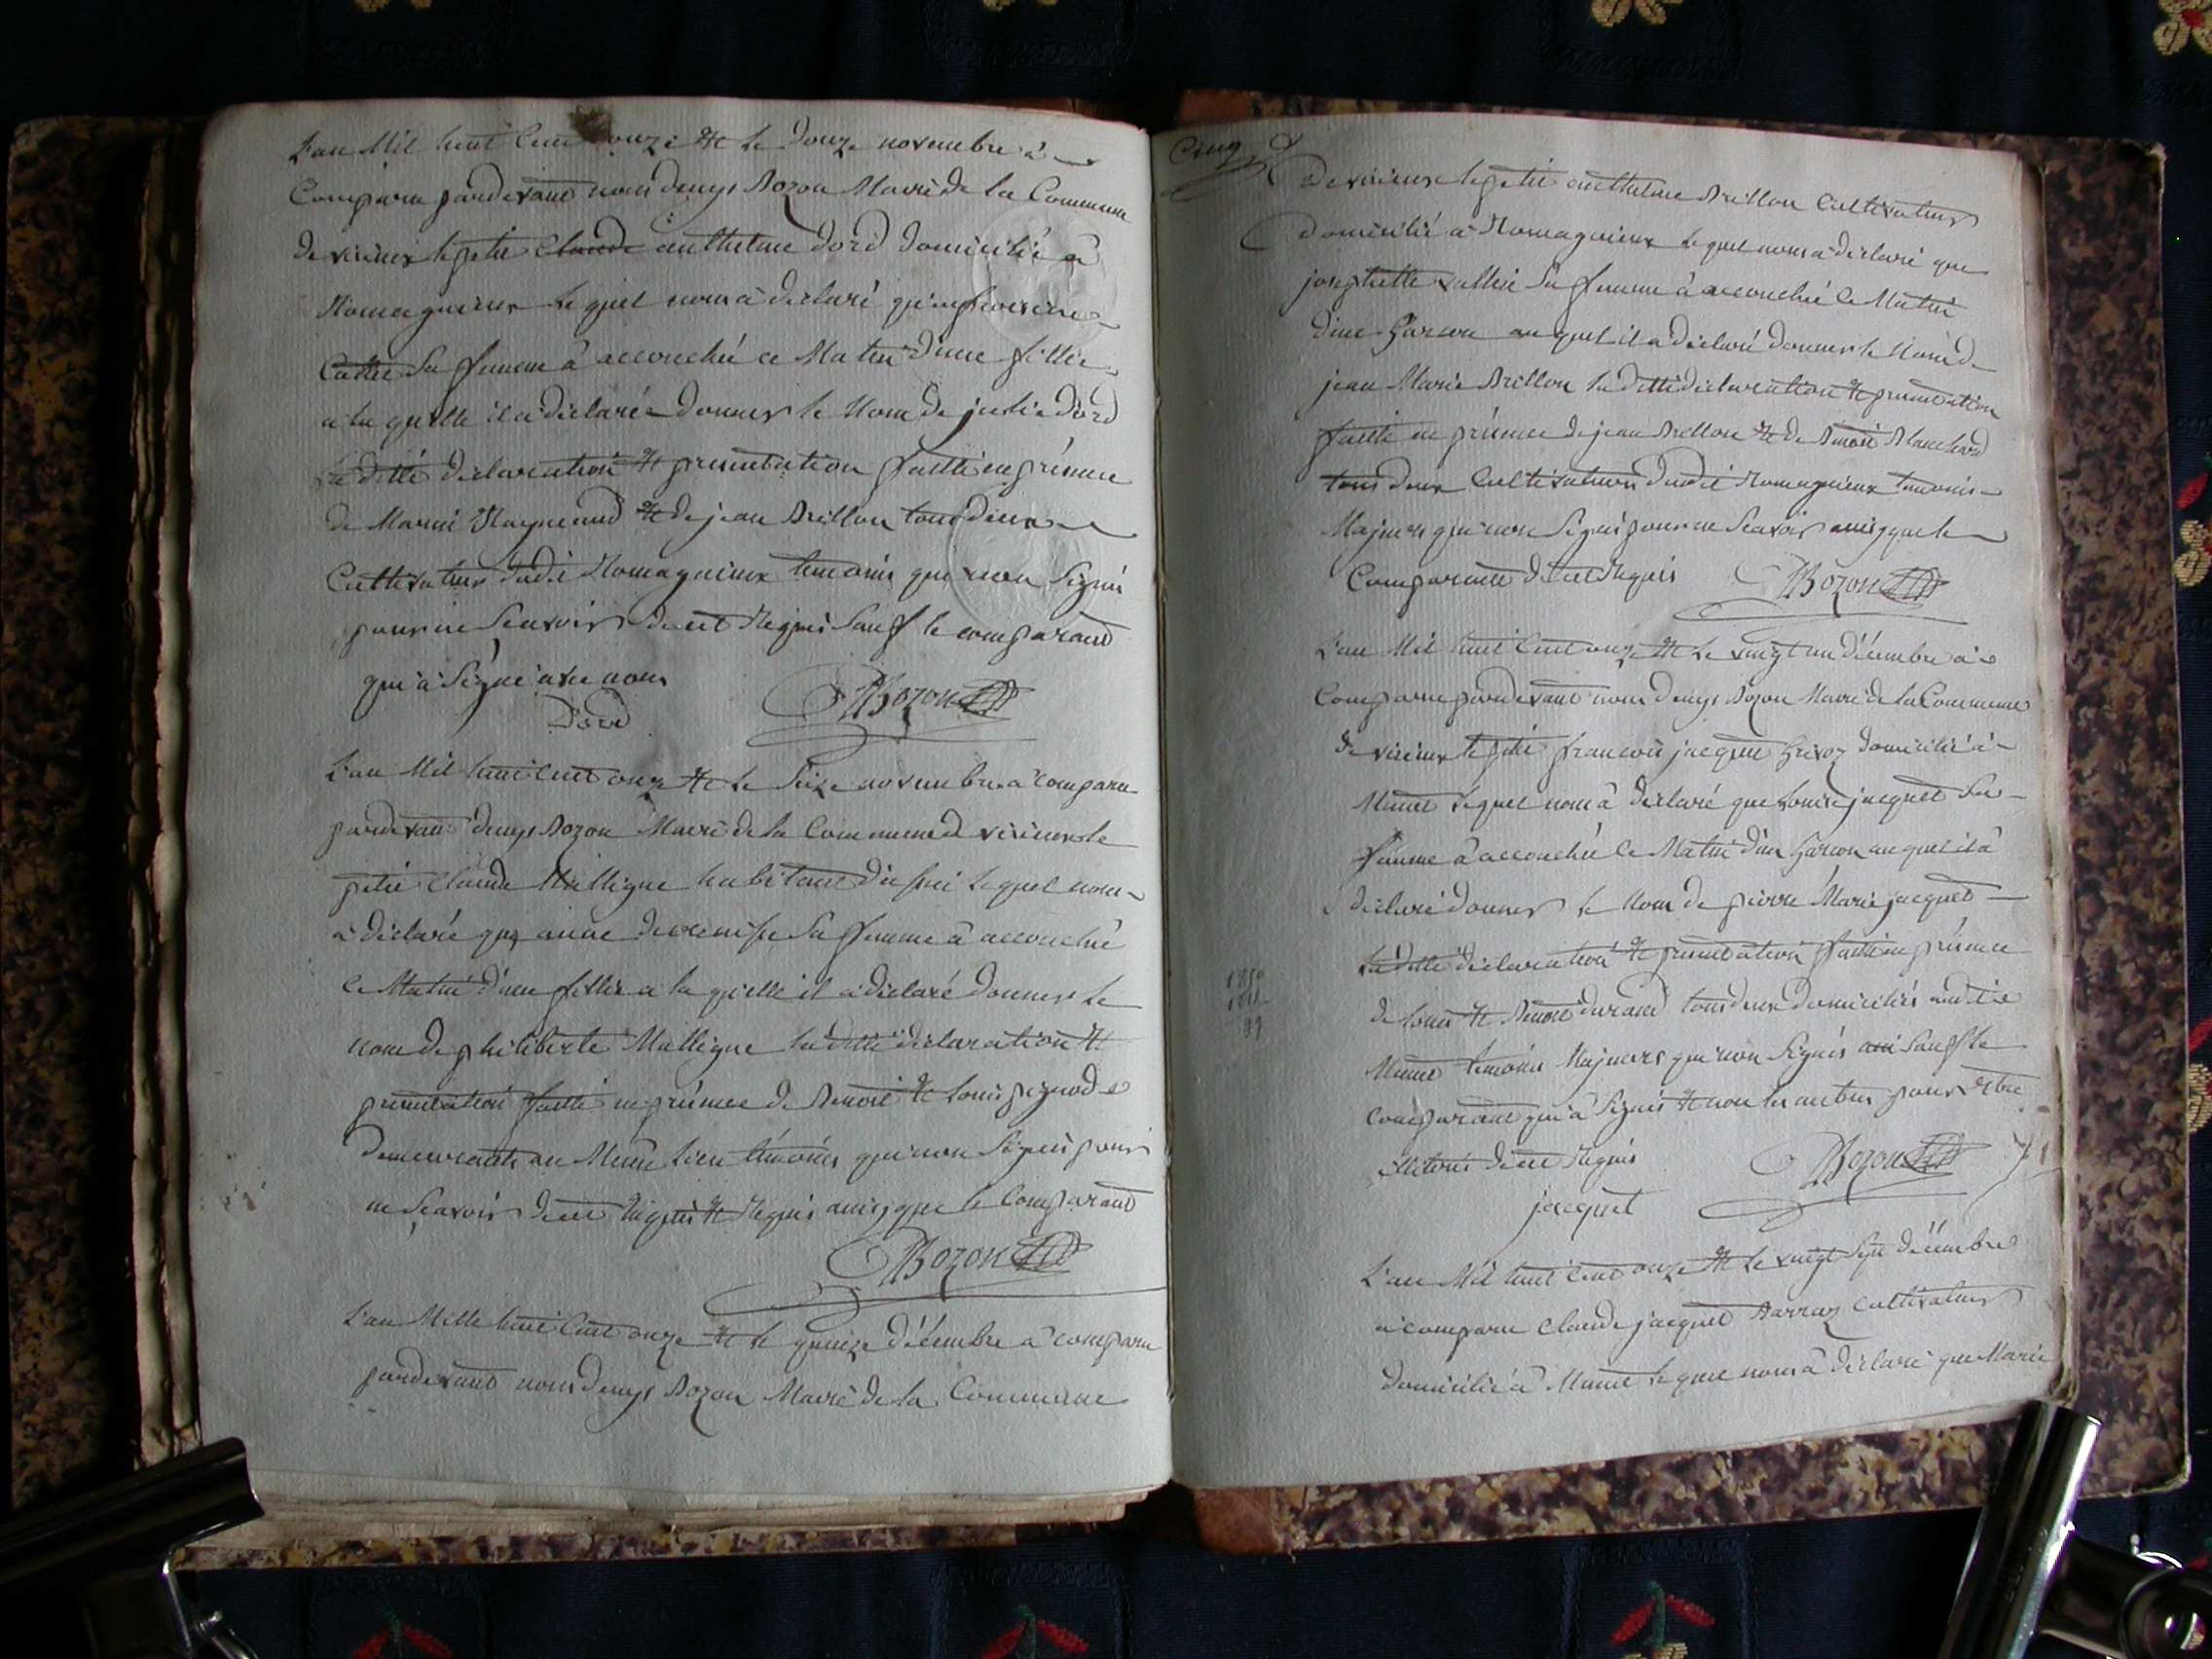 L'an Mil huit Cent onze & le Douze novembre à
Comparu pardevant nous denys Bozon Maire de la Commune
de virieux le petit claude anthelme Dord Domicilié à
Romagnieux le quel nous à déclaré que
sa femme à accouchée ce Matin d'une fille
a la quelle il a déclaré donner le Nom de julie Dord
la ditte déclaration & presentation faitte en présence
de Marin Raynaud & de jean Brillon tous deux
Cultivateurs dudit Romagnieux temoins qui non Signés
pour ne Scavoir de ce Requis Sauf le comparant
qui à Signé avec nous
Dord DBozon
L'an Mil huit Cent onze & le Seize novembre à comparu
pardevant denys Bozon Maire de la Commune de virieux le
petit Claude Mallique habitant le quel nous
à déclaré que anne Sa femme à accouché
ce Matin d'une fille a la quelle il à déclaré donner le
nom de philiberte Mallique la ditte déclaration &
presentation faitte en présence de Benoit & Louis pignod
demeurants au Même lieu témoins qui non Signés pour
ne Scavoir de ce Requis & Requis ainsi que le Comparant
DBozon
L'an Mille huit Cent onze & le quinze décembre à comparu
pardevant nous denys Bozon Maire de la Commune
Cinq
De virieux le petit anthelme Brillon Cultivateur
Domicilié à Romagnieux le quel nous à déclaré que
josephette Sa femme à accouchée ce Matin
d'une Garson au quel il a déclaré donner le Nom de
jean Marie Brillon la ditte déclaration & presentation
faitte en présence de jean Brillon & de Benoit Blanchard
tous deux Cultivateurs dudit Romagnieux temoins
Majeurs qui non Signés pour ne Scavoir ainsi que le
Comparant de ce Requis DBozon
L'an Mil huit Cent onze & le vingt un décembre à
Comparu pardevant nous denys Bozon Maire de la Commune
de virieux le petit francois jacquet Grivoz domicilié à
Munet le quel nous à déclaré que Louise jacquet Sa
femme à accouchée ce Matin d'un Garson au quel il à
déclaré donner le Nom de pierre Marie jacquet
La ditte déclaration & presentation faitte en présence
1850
1811
39
de Louis & Benoit durand tous deux domiciliés audit
Munet temoins Majeurs qui non Signés Sauf le
comparant qui à Signés & non les autres pour être
illitérés de ce Requis DBozon
jacquet
L'an Mil huit Cent onze & le vingt Sept décembre
à comparu Claude jacquet Barraz Cultivateur
domicilié à Munet le quel nous à déclaré que Marie